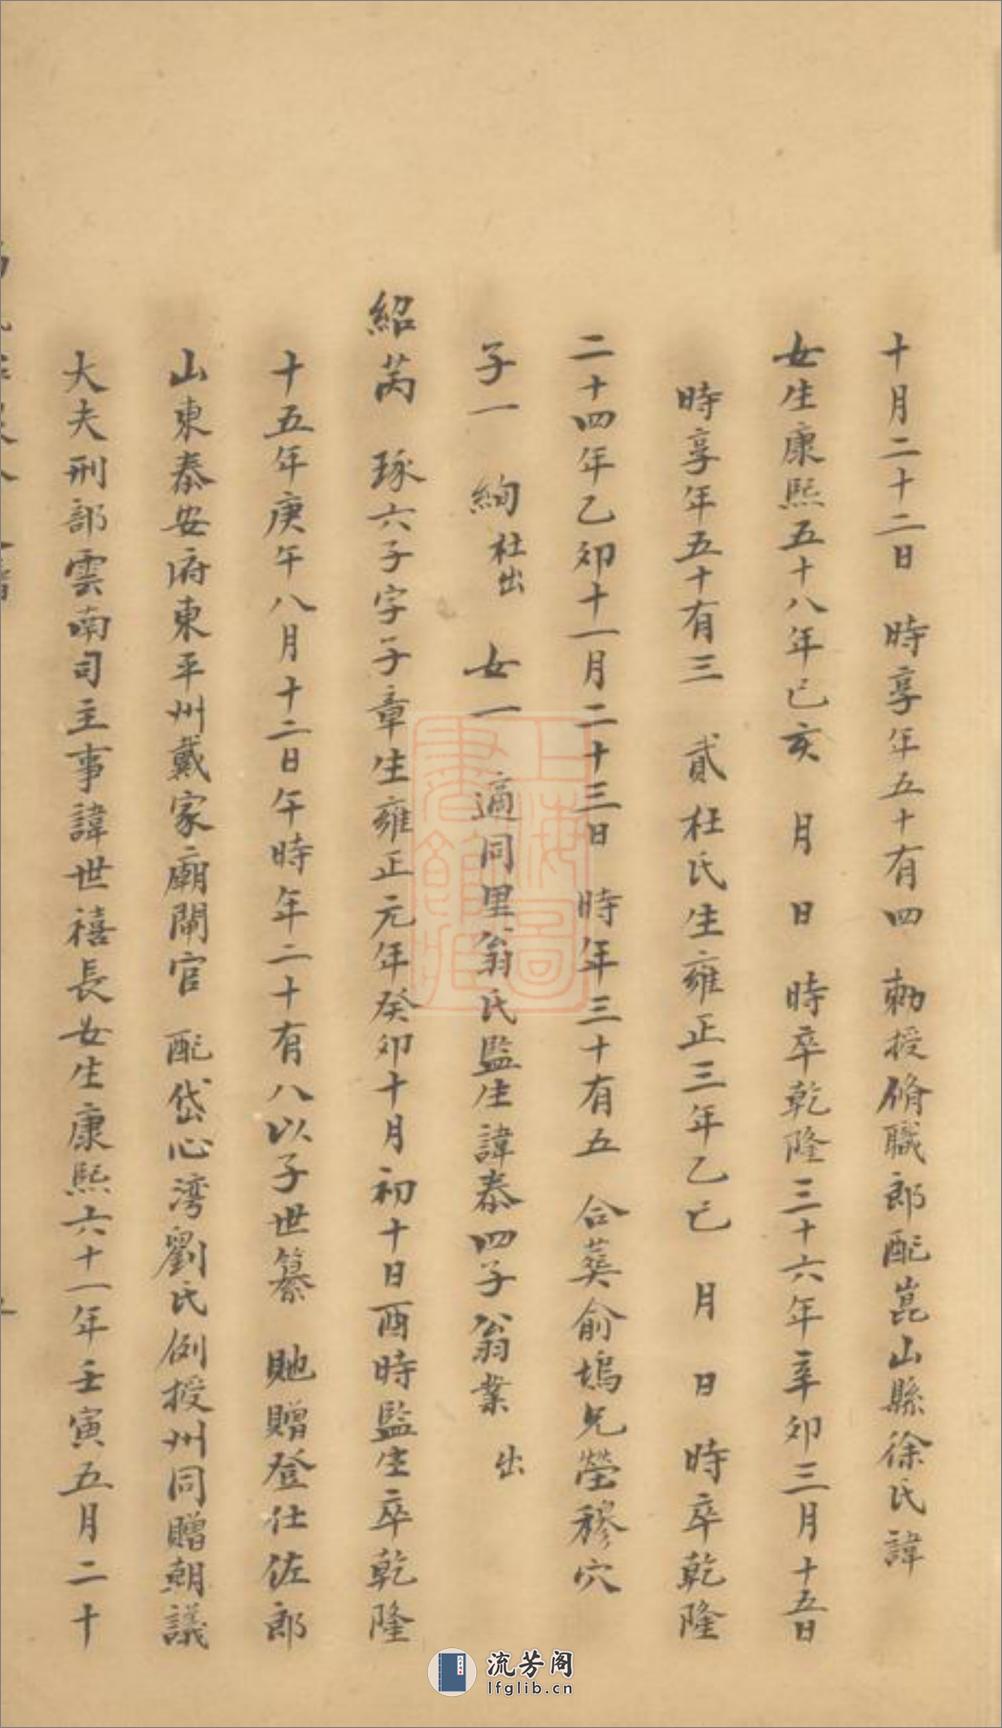 十月二十二日　時享年五十有四　勑授脩職郎配崑山縣徐氏諱
女生康熙五十八年己亥　月　日　時卒乾隆三十六年辛卯三月十五日
時享年五十有三　貳杜氏生雍正三年乙巳　月　日　時卒乾隆
二十四年乙卯十一月二十三日　時年三十有五　合葬俞塢兄塋穆穴
子一　絢杜出　女一　適同里翁氏監生諱泰四子翁業　出
紹芮　琢六子字子章生雍正元年癸卯十月初十日酉時監生卒乾隆
十五年庚午八月十二日午時年二十有八以子世纂　貤贈登仕佐郎
山東泰安府東平州戴家廟閘官　配岱心湾劉氏例授州同贈朝議
大夫刑部雲南司主事諱世禧長女生康熙六十一年壬寅五月二十
上海圖書館藏
流芳阁
lfglib.cn